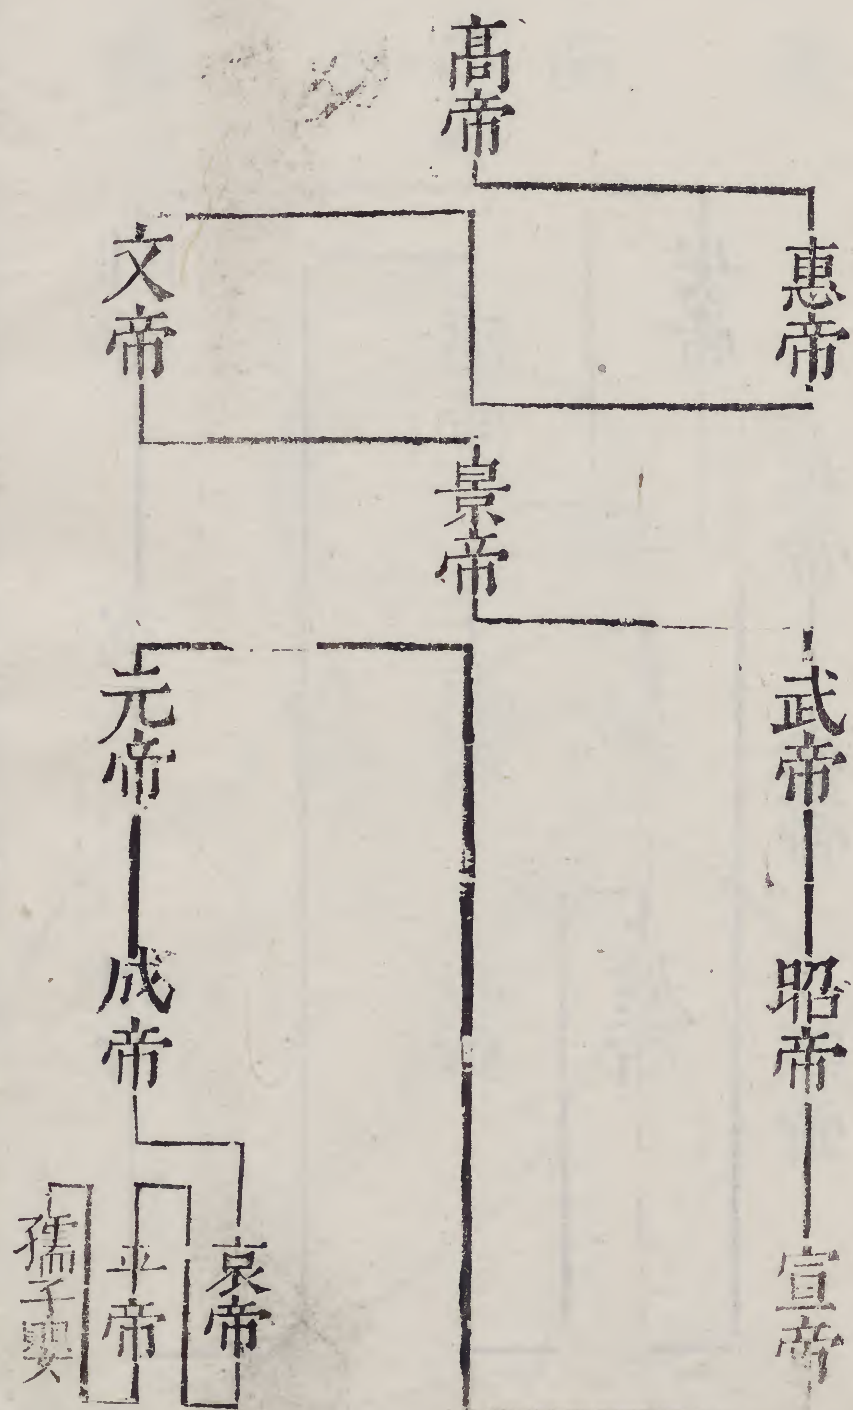 高帝
惠帝
文帝
景帝
武帝
昭帝
宣帝
元帝
成帝
哀帝
平帝
孺子嬰